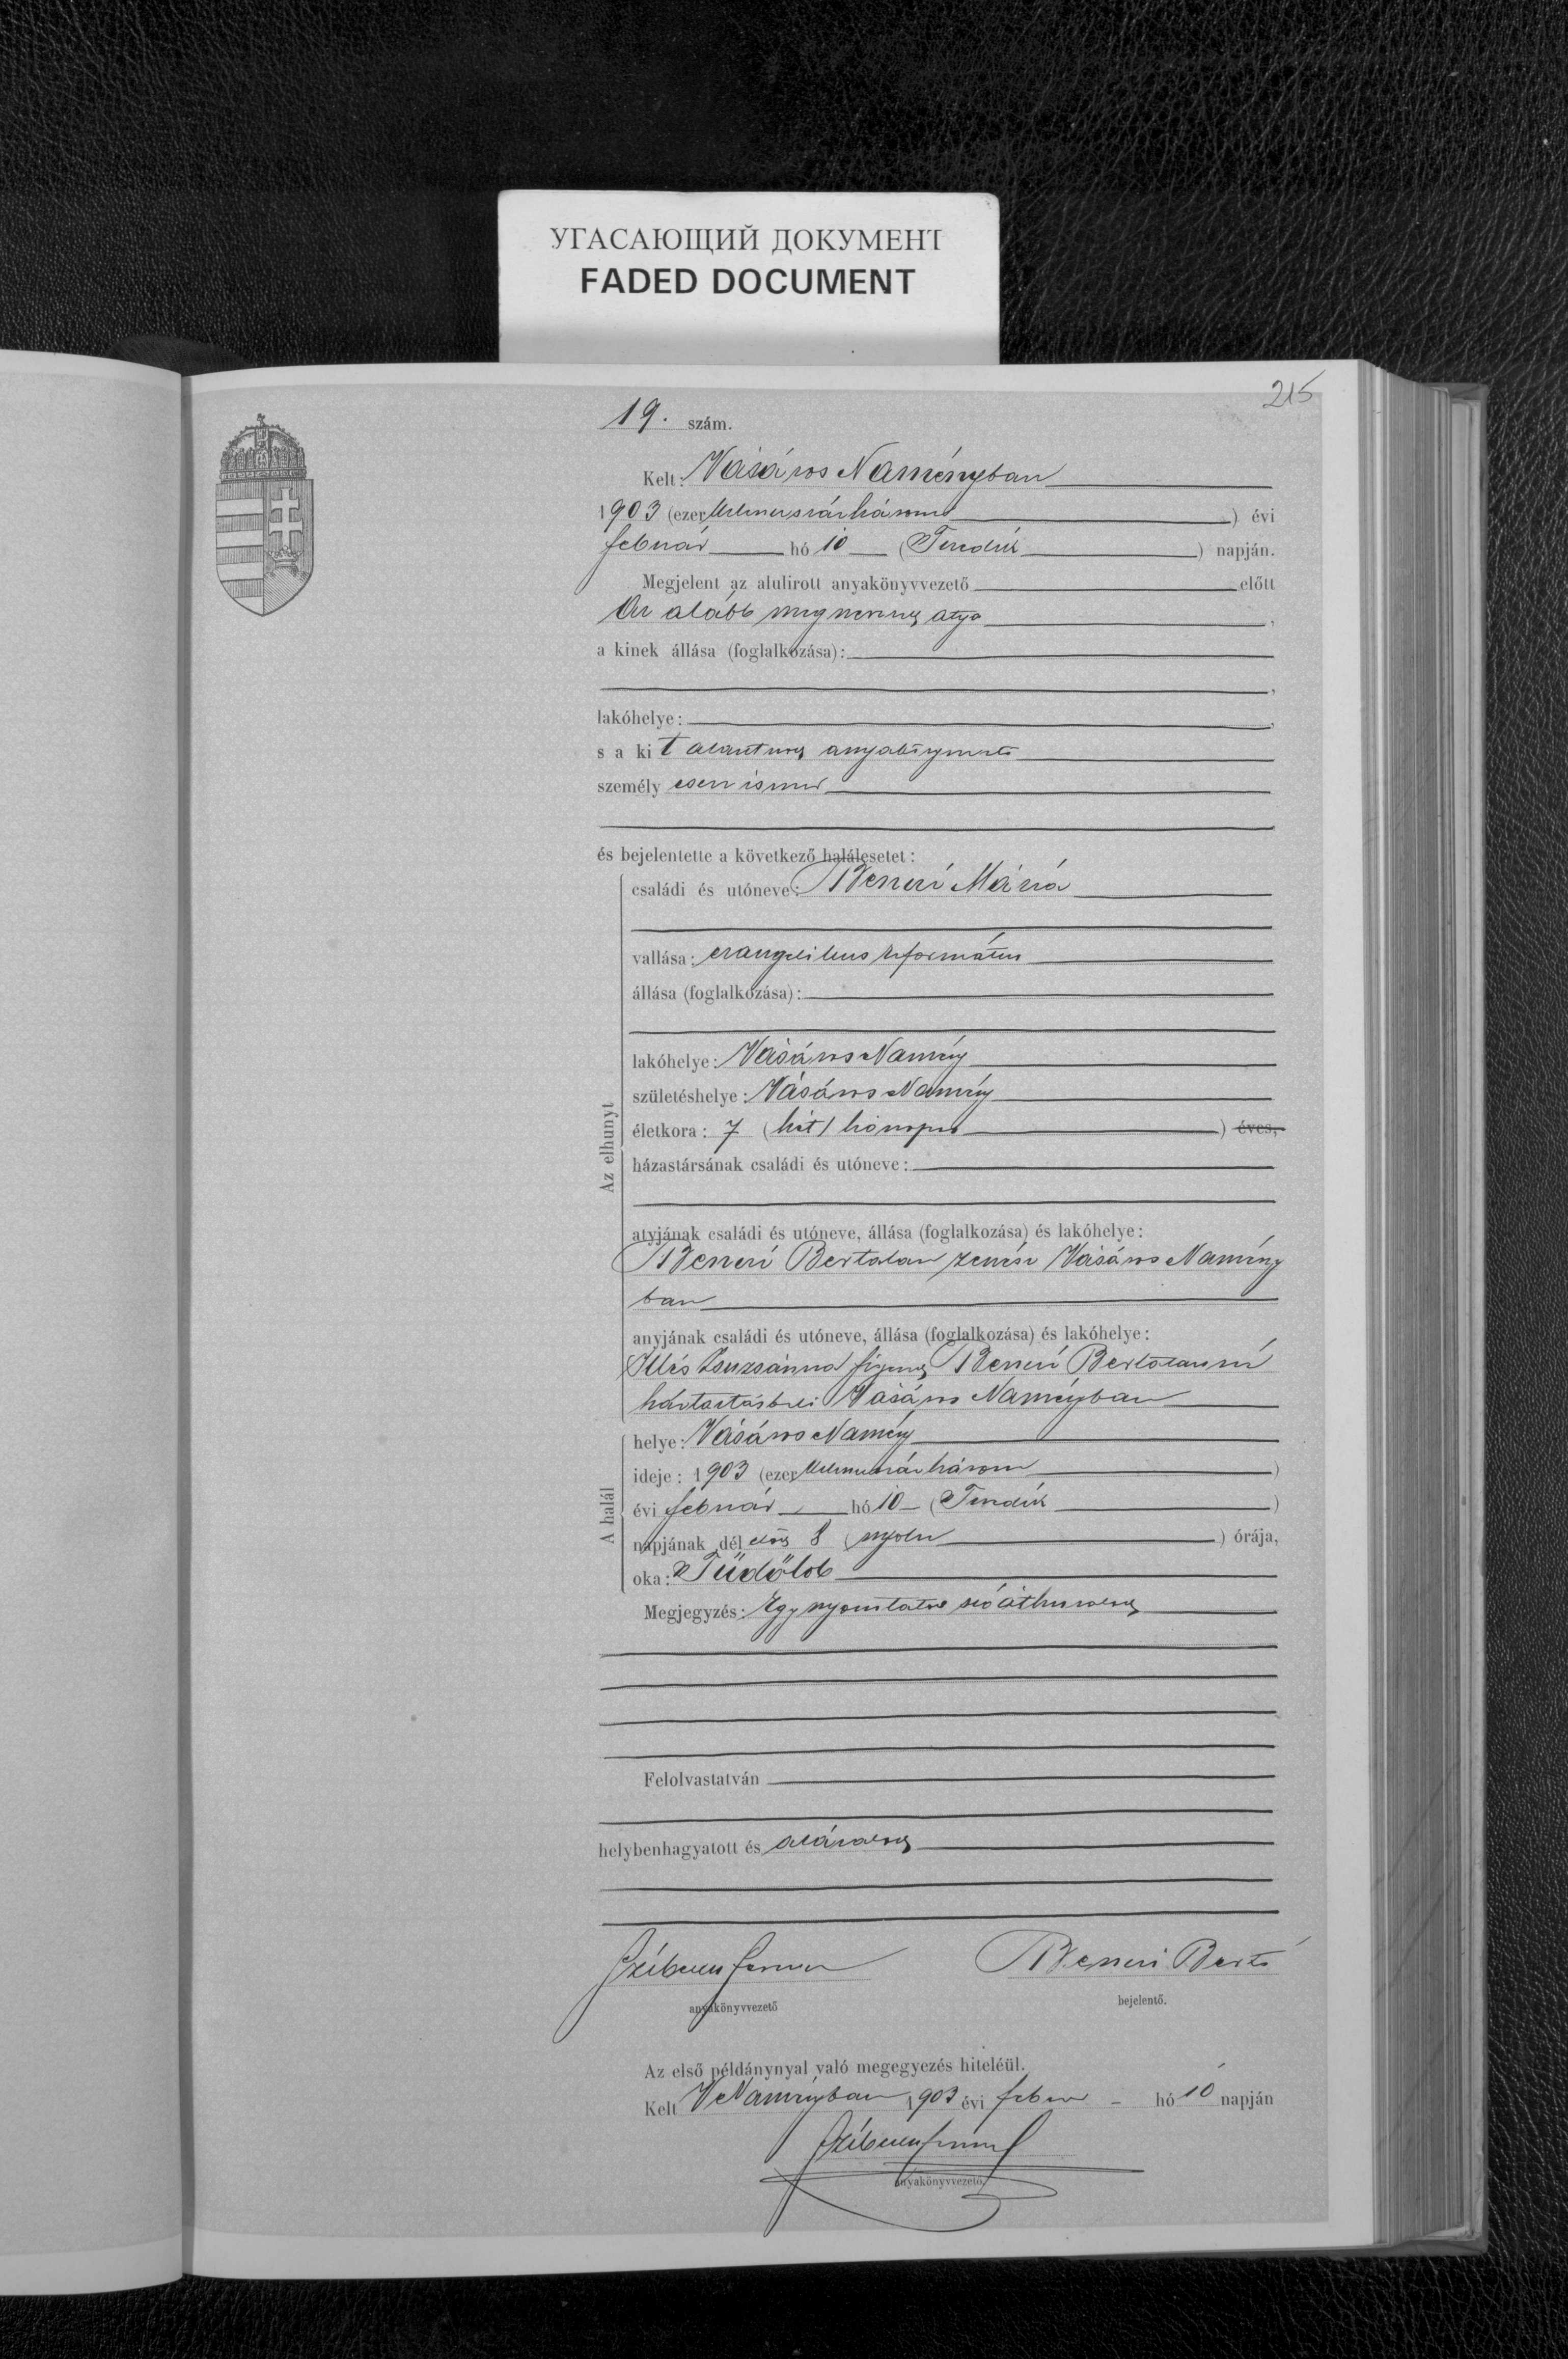 УГАСАЮЩИЙ ДОКУМЕНТ
FADED DOCUMENT
215
19. szám.
Kelt: Vásáros Naményban
1903 (ezer kilencszázhárom) évi
február hó 10 (Tizedik) napján.
Megjelent az alulirott anyakönyvvezető előtt
Az alább megnevezett atya,
a kinek állása (foglalkozása):
lakóhelye:
s a kit alantirott anyakönyvvezető
személyesen ismer
és bejelentette a következő halálesetet:
Az elhunyt
családi és utóneve: Mária
vallása: evangelikus református
állása (foglalkozása):
lakóhelye: Vásáros Namény
születéshelye: Vásáros Namény
életkora: 7 (hét) hónapos) éves,
házastársának családi és utóneve:
atyjának családi és utóneve, állása (foglalkozása) és lakóhelye:
Bertalan zenész Vásáros Namény
ban
anyjának családi és utóneve, állása (foglalkozása) és lakóhelye:
Illés Zsuzsánna Bertalanné
háztartásbeli Vásáros Naményban
A halál
helye: Vásáros Namény
ideje: 1903 (ezer kilencszázhárom)
évi február hó 10 (Tizedik)
napjának dél előtt 8 (nyolc) órája,
oka: Tüdőlob
Megjegyzés: Egy nyomtatott szó áthúzva
Felolvastatván
helybenhagyatott és aláíratott
Bertó
anyakönyvvezető
bejelentő.
Az első példánynyal való megegyezés hiteléül.
Kelt V Naményban 1903 évi febru hó 10 napján
anyakönyvvezető.